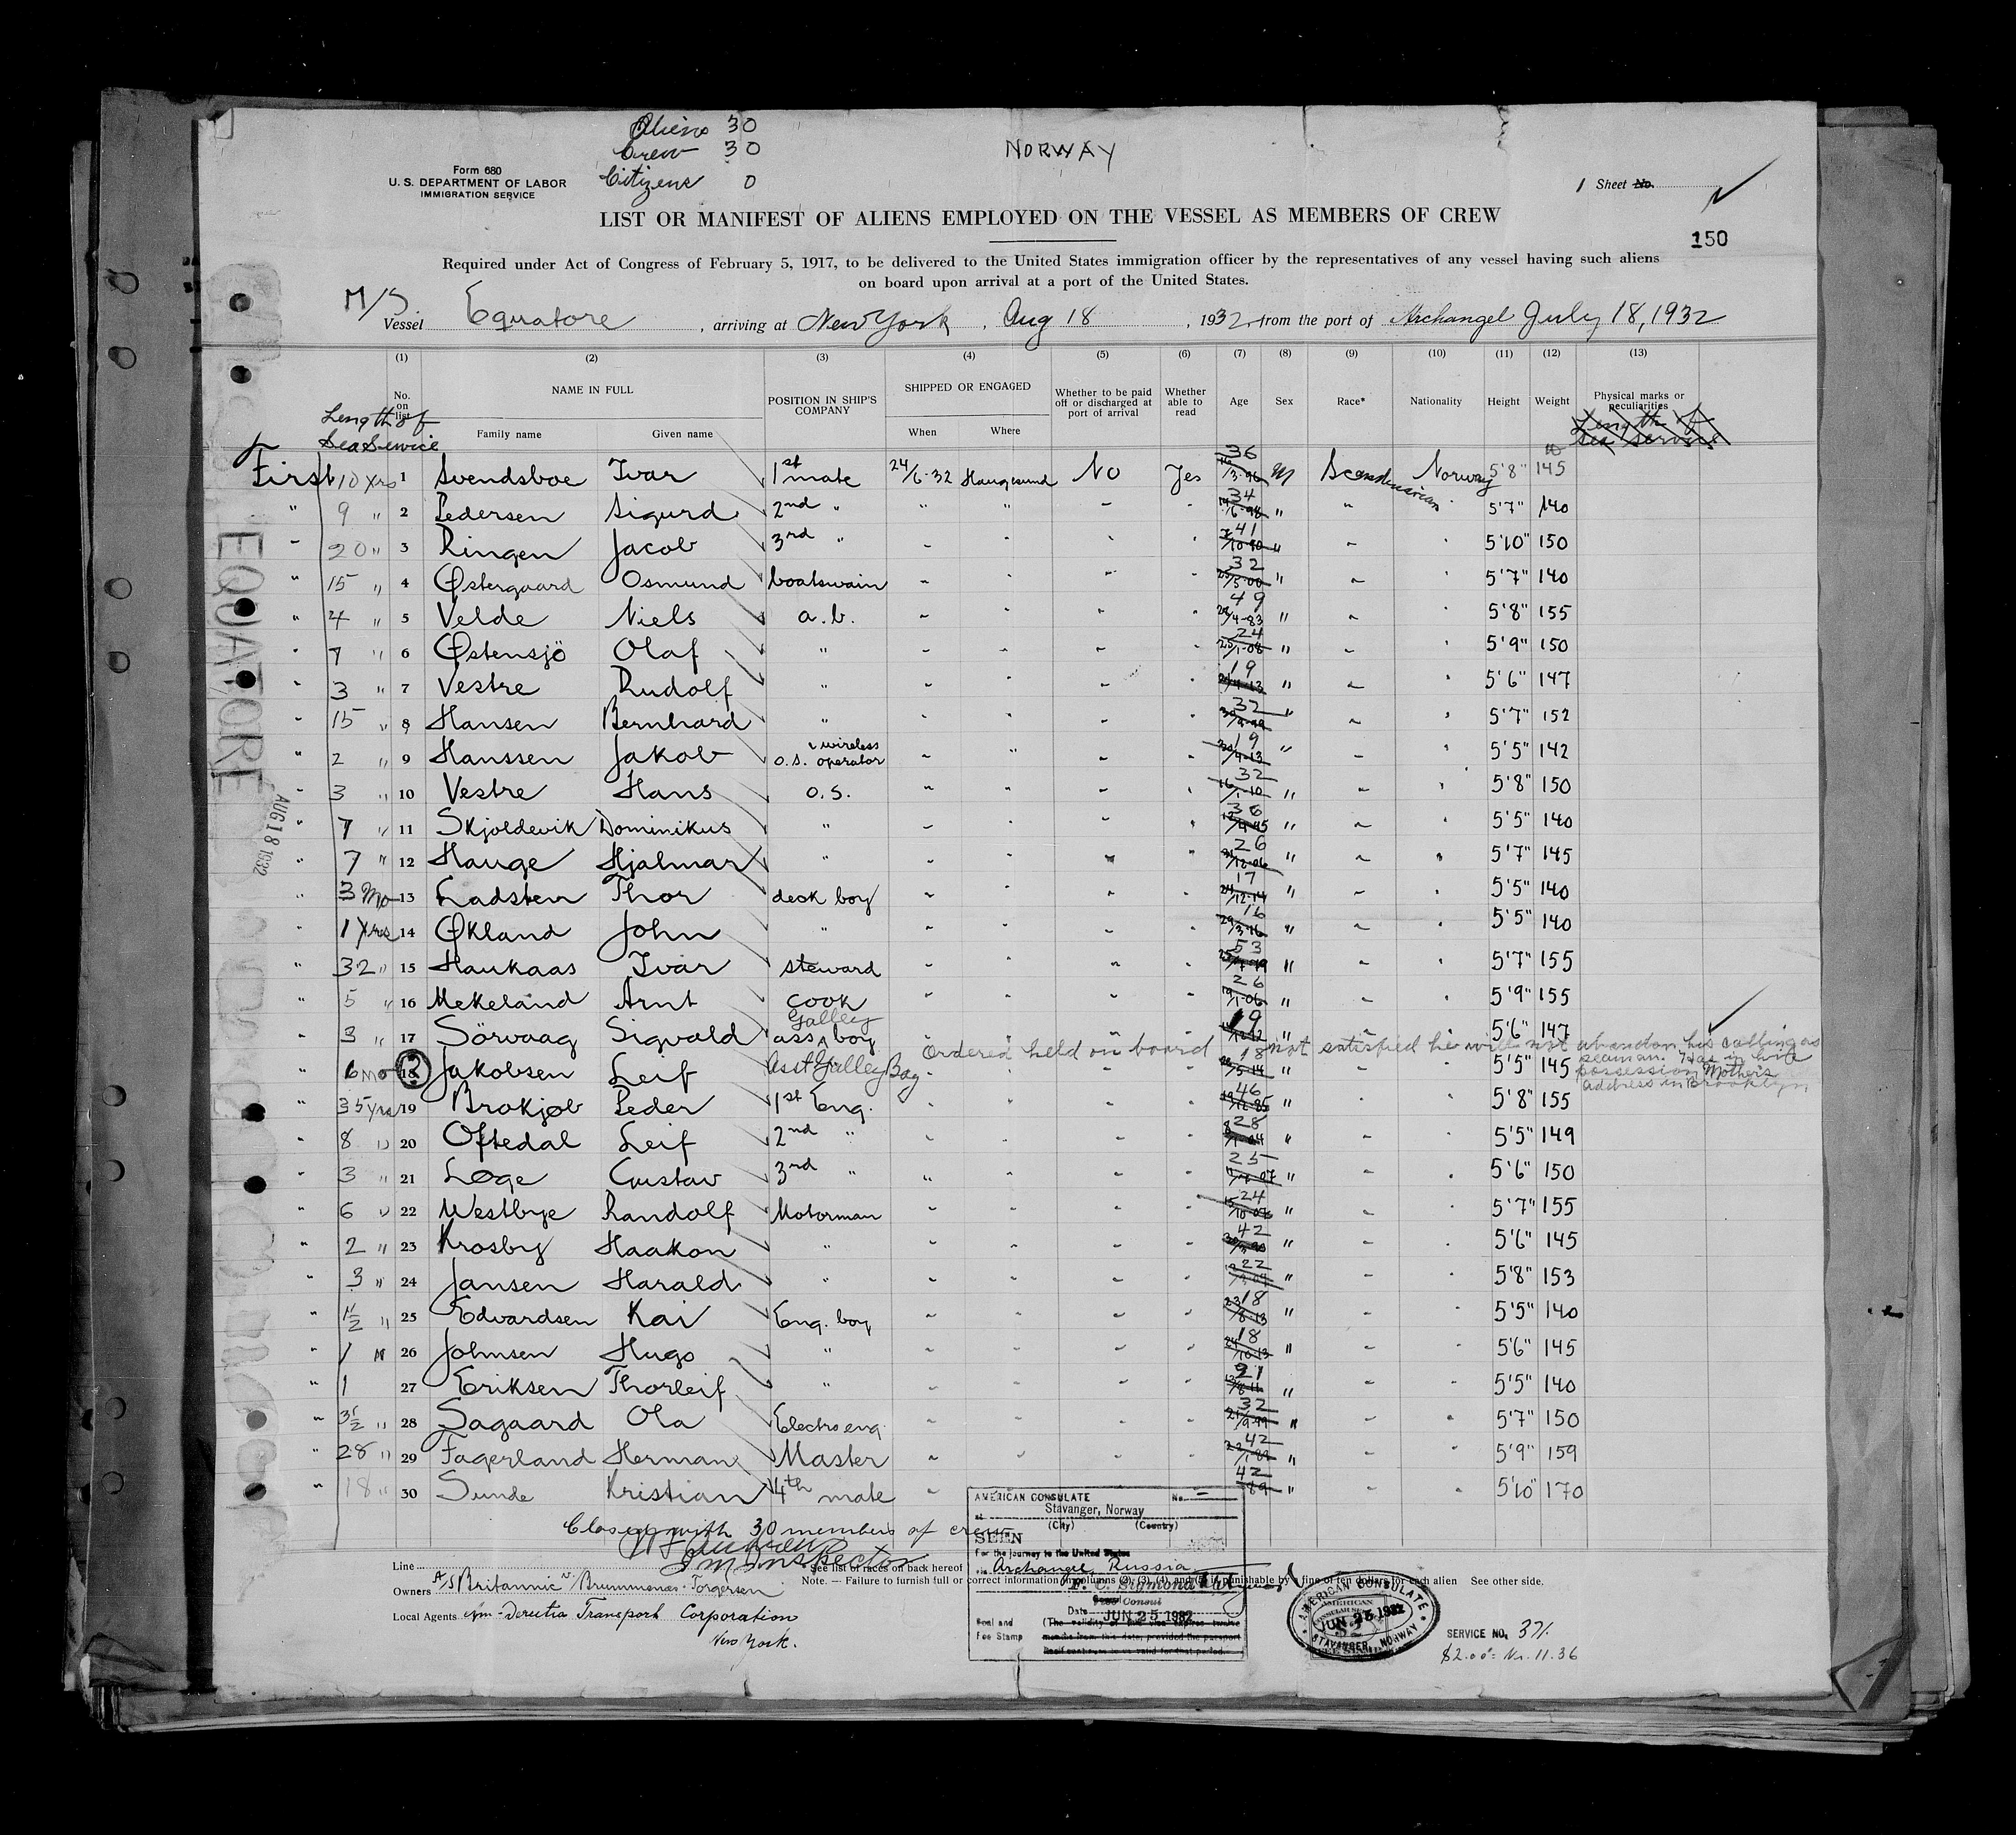 Aliens 30
Crew 30
Citizens 0
NORWAY
Form 680
U. S. DEPARTMENT OF LABOR
IMMIGRATION SERVICE
1 Sheet No.
LIST OR MANIFEST OF ALIENS EMPLOYED ON THE VESSEL AS MEMBERS OF CREW
150
Required under Act of Congress of February 5, 1917, to be delivered to the United States immigration officer by the representatives of any vessel having such aliens
on board upon arrival at a port of the United States.
M/S Vessel Equatore, arriving at New York, Aug 18, 1932, from the port of Archangel July 18, 1932
(1) (2) (3) (4) (5) (6) (7) (8) (9) (10) (11) (12) (13)
Length of Sea Service
No. on list
NAME IN FULL
Family name Given name
POSITION IN SHIP'S COMPANY
SHIPPED OR ENGAGED
When Where
Whether to be paid off or discharged at port of arrival
Whether able to read
Age Sex Race* Nationality Height Weight
Physical marks or peculiarities
Length of Sea Service
First 10 yrs 1 Svendsboe Ivar 1st mate 24/6-32 Haugesund No Yes 36 M Scandinavian Norway 5'8" 145
" 9 " 2 Pedersen Sigurd 2nd " " " 34 " " 5'7" 140
" 20 " 3 Ringen Jacob 3rd " 41 " 5'10" 150
" 15 " 4 Østergaard Osmund boatswain 32 " 5'7" 140
" 4 " 5 Velde Niels a.b. 49 " 5'8" 155
" 7 " 6 Østensjö Olaf " 24 " 5'9" 150
" 3 " 7 Vestre Rudolf " 19 " 5'6" 147
" 15 " 8 Hansen Bernhard " 32 " 5'7" 152
" 2 " 9 Hanssen Jakob o.s. wireless operator 19 " 5'5" 142
" 3 " 10 Vestre Hans o.s. 32 " 5'8" 150
" 7 " 11 Skjoldevik Dominikus " 36 " 5'5" 140
" 7 " 12 Hauge Hjalmar " 26 " 5'7" 145
" 3 Mo 13 Ladsten Thor deck boy 17 " 5'5" 140
" 1 Yrs 14 Økland John " 16 " 5'5" 140
" 32 " 15 Haukaas Ivar steward 53 " 5'7" 155
" 5 " 16 Mekeland Arnt cook 26 " 5'9" 155
" 3 " 17 Sörvaag Sigvald ass Galley boy 19 " 5'6" 147
Ordered held on board not satisfied he will not abandon his calling as seaman. Has in his possession Mother's address in Brooklyn
" 6 mo 18 Jakobsen Leif Asst Galley Boy 18 " 5'5" 145
" 35 yrs 19 Brokjøb Peder 1st Eng. 46 " 5'8" 155
" 8 " 20 Oftedal Leif 2nd " 28 " 5'5" 149
" 3 " 21 Løge Gustav 3rd " 25 " 5'6" 150
" 6 " 22 Westbye Randolf Motorman 24 " 5'7" 155
" 2 " 23 Krosby Haakon " 42 " 5'6" 145
" 3 " 24 Jansen Harald " 22 " 5'8" 153
" 1 1/2 " 25 Edvardsen Kai Eng. boy 18 " 5'5" 140
" 1 " 26 Johnsen Hugo " 18 " 5'6" 145
" 1 27 Eriksen Thorleif " 21 " 5'5" 140
" 3 1/2 " 28 Sagaard Ola Electro eng. 32 " 5'7" 150
" 28 " 29 Fagerland Herman Master 42 " 5'9" 159
" 18 " 30 Sunde Kristian 4th mate 42 " 5'10" 170
EQUATORE
AUG 18 1932
Closed with 30 members of crew
Inspector
Line
See list of races on back hereof
Note. — Failure to furnish full or correct information in columns (2), (3), (4) and (5) is punishable by a fine of ten dollars for each alien See other side.
Owners A/S Britannic Brummenæs Torgersen
Local Agents Am-Derutra Transport Corporation
New York.
AMERICAN CONSULATE No.
at Stavanger, Norway
(City) (Country)
SEEN
For the journey to the United States
via Archangel, Russia
Consul
Date JUN 25 1932
Seal and Fee Stamp
(The validity of this visa expires twelve months from this date, provided the passport itself continues to be valid for that period.
AMERICAN CONSULATE
JUN 25 1932
STAVANGER, NORWAY
SERVICE NO. 371
$2.00 = Kr. 11.36